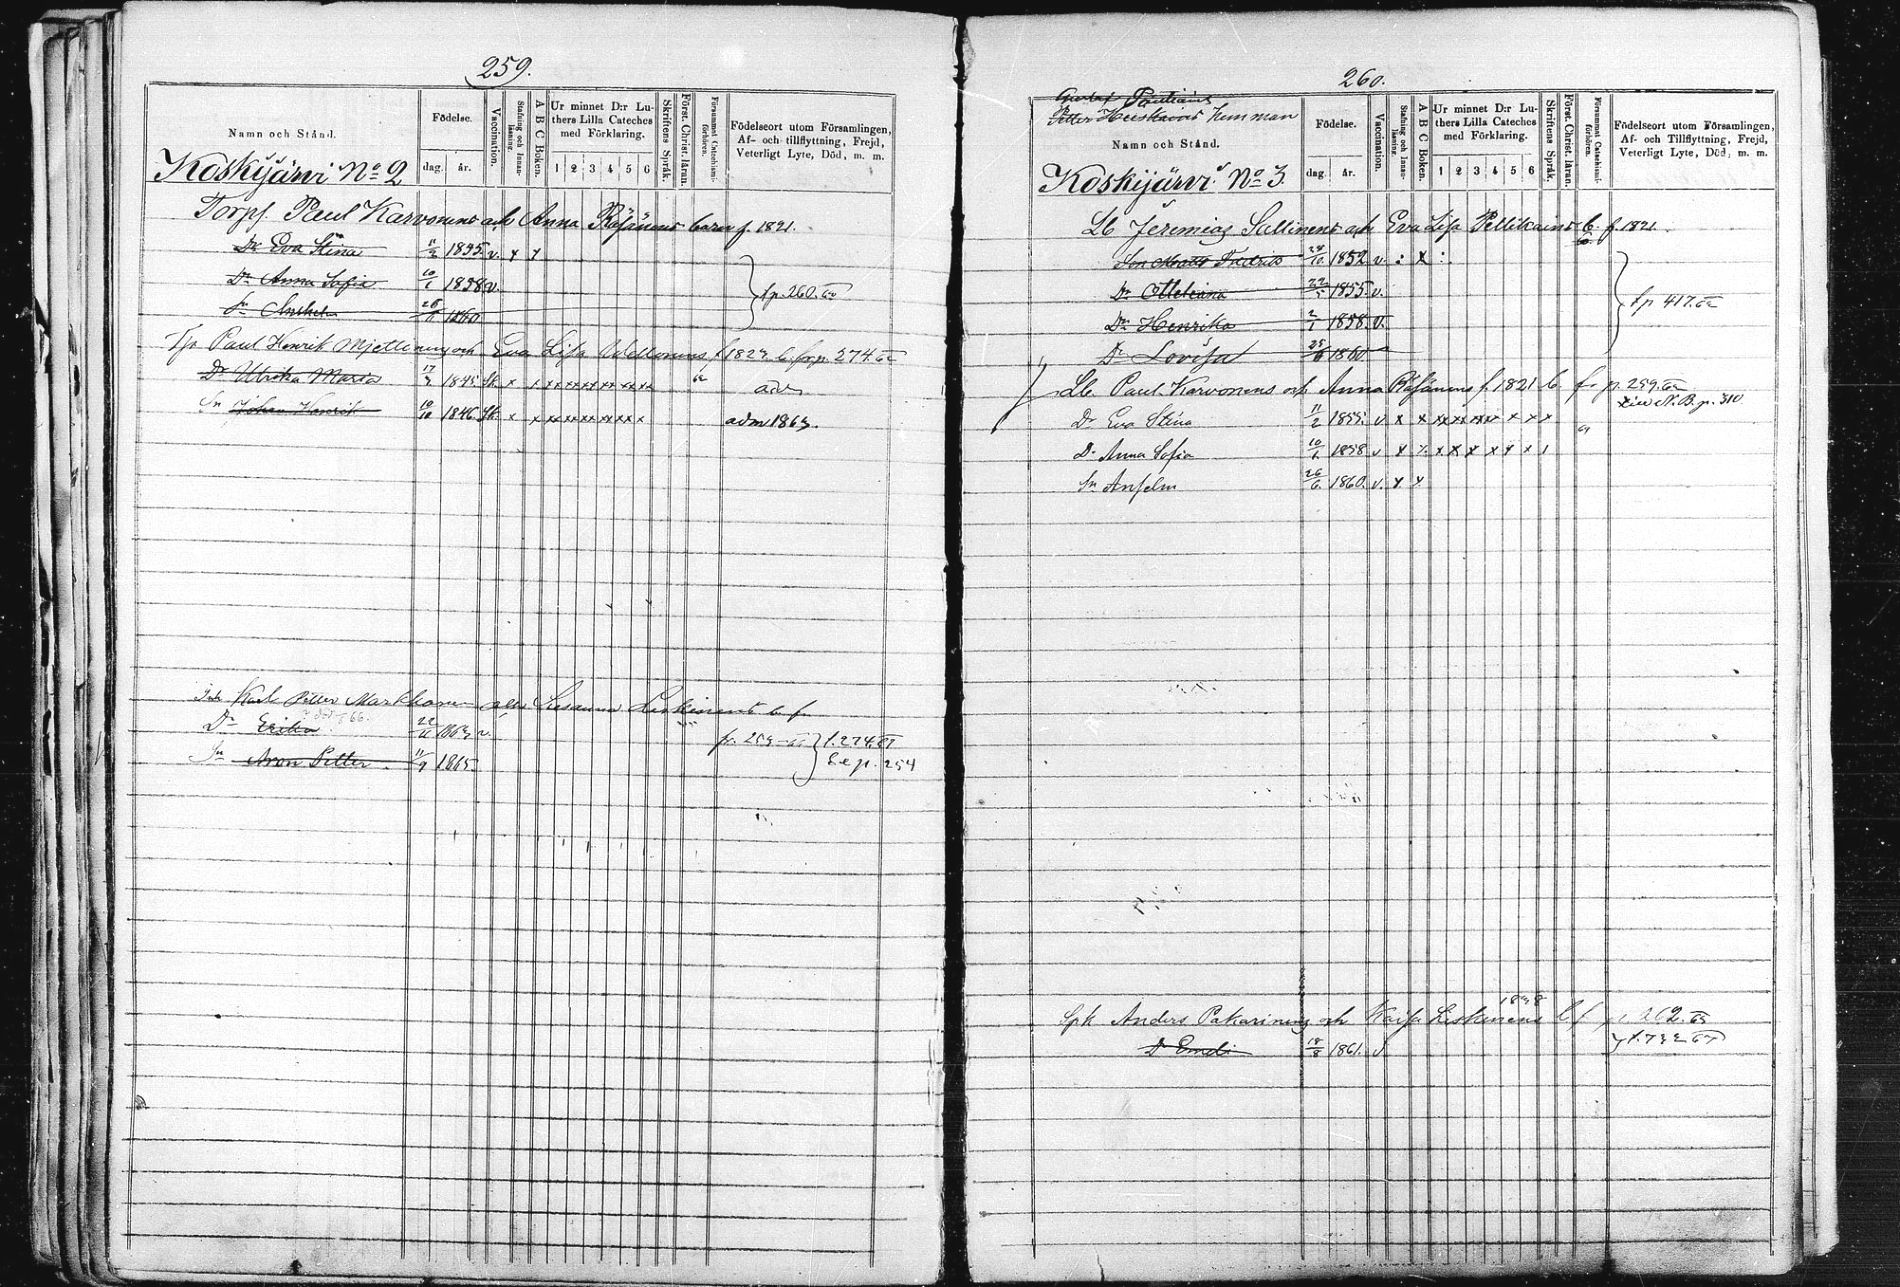 259.
Namn och Stånd.
Födelse.
dag. år.
Vaccination.
Stafning och Innanläsning.
A B C Boken.
Ur minnet D:r Luthers Lilla Cateches med Förklaring.
1 2 3 4 5 6
Skriftens Språk.
Först. Christ. läran.
Försummat Catechismi-förhören.
Födelseort utom Församlingen, Af- och tillflyttning, Frejd, Veterligt Lyte, Död, m. m.
Koskijärvi No 2
Torpf. Paul Karvonens och Anna Räsänens barn f. 1821.
Dr Eva Stina 11/2 1855. v. x x
Dr Anna Sofia 10/1 1858 v.
Sn Anshelm 26/6 1860 } f. p. 260. 62
Paul Henrik och Eva Lisa f 1823 b. fr. p. 274
Dr Ulrika Maria 17/3 1845 x x x x x x x x x x adm
Sn Johan Henrik 10/10 1846 x x x x x x x x x adm 1863.
Karl Petter Markkanen och Susanna Leskinens b. fr
Dr Erika 22/11 1863 v. död 66.
Sn Aron Petter 11/9 1865 } f. 274. 67
Se p. 254
260.
Gustaf Pautiains
Petter Heiskanens hemman
Namn och Stånd.
Födelse.
dag. år.
Vaccination.
Stafning och Innanläsning.
A B C Boken.
Ur minnet D:r Luthers Lilla Cateches med Förklaring.
1 2 3 4 5 6
Skriftens Språk.
Först. Christ. läran.
Försummat Catechismi-förhören.
Födelseort utom Församlingen, Af- och Tillflyttning, Frejd, Veterligt Lyte, Död, m. m.
Koskijärvi No 3.
Lb Jeremias Sallinens och Eva Lisa Pellikains b. f. 1821
Son Matts Fredrik 24/10 1852 v.
Dr Otteliana 22/5 1855. v.
Dr Henrika 2/1 1858. v. } f p 417. 62
Dr Lovisa 25/6 1860
Lb. Paul Karvonens och Anna Räsänens f. 1821 b. fr p. 259. 62
N. B. p. 310
Dr Eva Stina 11/2 1855. v. x x x x x x x x x
Dr Anna Sofia 10/1. 1858 v x x x x x x x
Sn Anselm 26/6. 1860. v. x x
Spk Anders Pakarinens och Kaisa Leskinens 1838 b. f p. 262. 65
Dr Emeli 18/8 1861. v